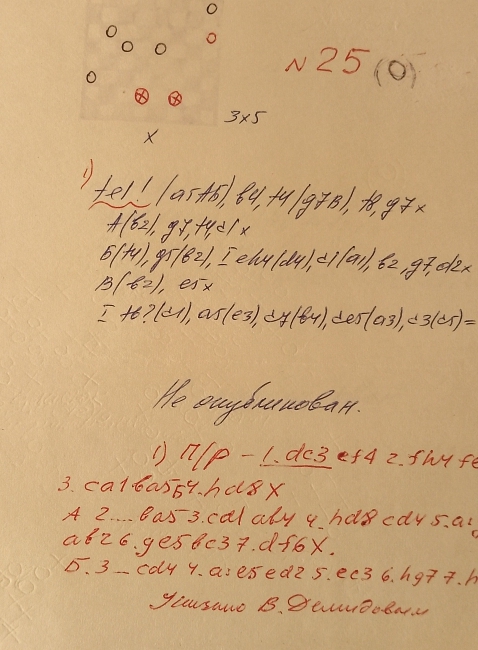 N 25 (0)
3x5
x
1) fe1! (a5АБ), b4, f4 (g7В), f8, g7x
А(b2), g7, f4, c1x
Б(f4), g5(b2), I eh4(d4), c1(a1), b2, g7, d2x
В(b2), e5x
I f6?(c1), a5(e3), d7(b4), de5(a3), c3(c5)=
Не опубликован.
1) П/р – 1. dc3 ef4 2. fh4 fe
3. ca1 ba5Б 4. hd8 X
А 2.... ba5 3. cd1 ab4 4. hd8 cd4 5. a:
ab2 6. ge5 bc3 7. df6X.
Б. 3 – cd4 4. a:e5 ed2 5. ec3 6. hg7 7. h
Указано В. Демидовым